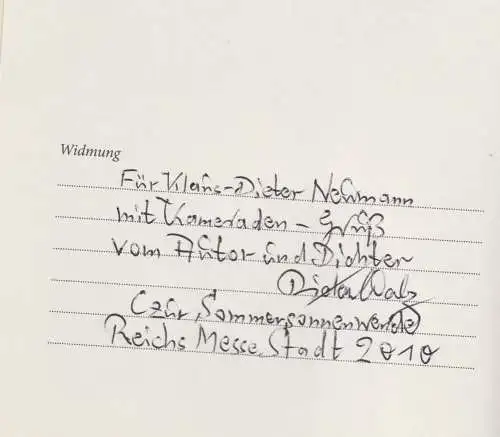 Widmung
Für Klaus-Dieter Neumann
mit Kameraden-Grüß
vom Aûtor und Dichter
Dieter Walz
(zur Sommersonnenwende)
Reichs Messe Stadt 2010